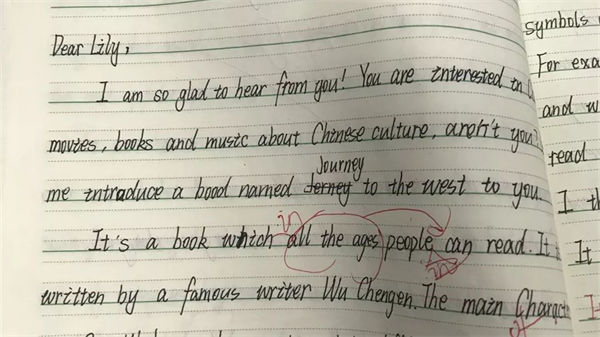 Dear Lily,
I am so glad to hear from you! You are interested in
movies, books and music about Chinese culture, aren't you?
me intraduce a bood named Jerney Journey to the west to you.
in
It's a book which all the ages people can read. It
in
written by a famous writer Wu Chengen. The main Charact
symbols
For exa
and w
read
I th
It